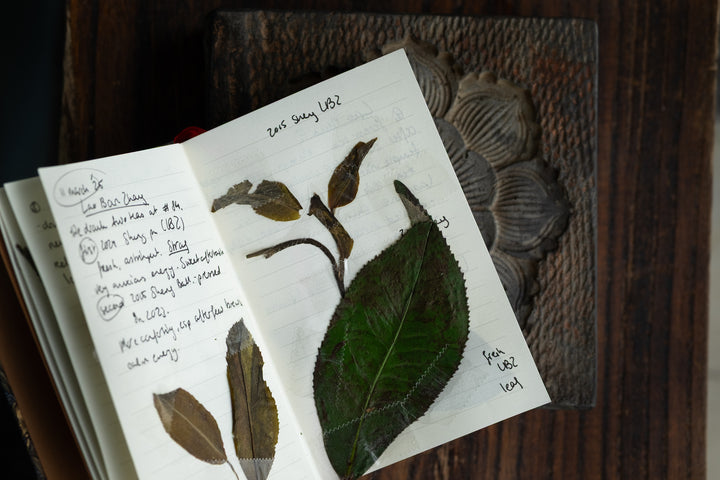 11 March '25
Lao Ban Zhang
We drank two teas at #84.
first 2024 Sheng Pu (LBZ)
fresh, astringent. Strong
very anxious energy. Sweet aftertaste
second 2015 Sheng Ball-pressed
in 2023.
More comforting, esp after few brews
calm energy.
2015 Sheng LBZ
fresh
LBZ
leaf